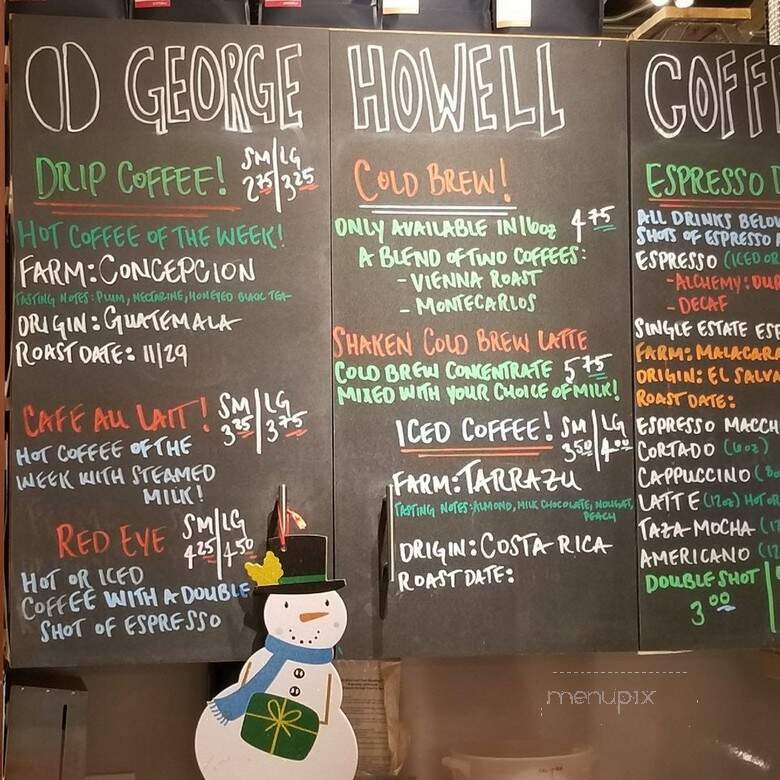 GEORGE HOWELL COFF
DRIP COFFEE! SM|LG
2.75 3.25
HOT COFFEE OF THE WEEK!
FARM: CONCEPCION
TASTING NOTES: PLUM, NECTARINE, HONEYED BLACK TEA
ORIGIN: GUATEMALA
ROAST DATE: 11/29
CAFE AU LAIT! SM|LG
3.25 3.75
HOT COFFEE OF THE
WEEK WITH STEAMED
MILK!
RED EYE SM|LG
4.25 4.50
HOT OR ICED
COFFEE WITH A DOUBLE
SHOT OF ESPRESSO
COLD BREW!
ONLY AVAILABLE IN 16oz 4.75
A BLEND OF TWO COFFEES:
- VIENNA ROAST
- MONTECARLOS
SHAKEN COLD BREW LATTE
COLD BREW CONCENTRATE 5.75
MIXED WITH YOUR CHOICE OF MILK!
ICED COFFEE! SM|LG
3.50 4.00
FARM: TARRAZU
TASTING NOTES: ALMOND, MILK CHOCOLATE, NOUGAT,
PEACH
ORIGIN: COSTA RICA
ROAST DATE:
ESPRESSO D
ALL DRINKS BELOW
SHOTS OF ESPRESSO
ESPRESSO (ICED OR
- ALCHEMY: DUR
- DECAF
SINGLE ESTATE ESE
FARM: MALACARA
ORIGIN: EL SALVA
ROAST DATE:
ESPRESSO MACCH
CORTADO (6oz)
CAPPUCCINO (8o
LATTE (12oz) HOT OR
TAZA MOCHA (1
AMERICANO (1
DOUBLE SHOT
3.00
menupix